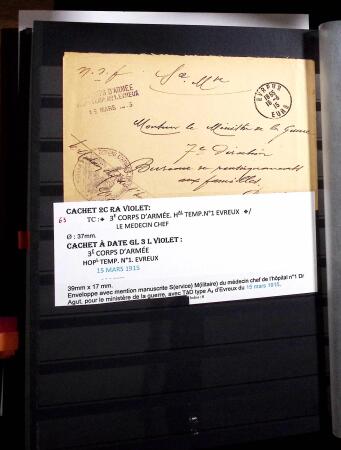 n. s. f.
Sce Mre
3E CORPS D'ARMÉE
15 MARS 1915
EVREUX
EURE
Monsieur le Ministre de la Guerre
7e Direction
Bureau de renseignements
aux familles
CACHET 2C RA VIOLET:
63 TC : ⬥ 3E CORPS D'ARMÉE. HAL TEMP.N°1 EVREUX ⬥/
LE MEDECIN CHEF
Ø : 37mm.
CACHET À DATE GL 3 L VIOLET :
3E CORPS D'ARMÉE
HOPL TEMP. N°1. EVREUX
15 MARS 1915
39mm x 17 mm.
Enveloppe avec mention manuscrite S(ervice) M(ilitaire) du médecin chef de l'hôpital n°1 D/
Agut, pour le ministère de la guerre, avec TAD type A4 d'Evreux du 15 mars 1915.